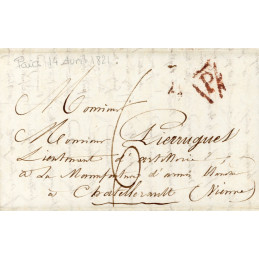 Paris 14 avril 1821.
P
Monsieur
Monsieur Pierrugues
Lieutenant d'artillerie
à la Manufacture d'armes
à Chatellerault (Vienne)
6